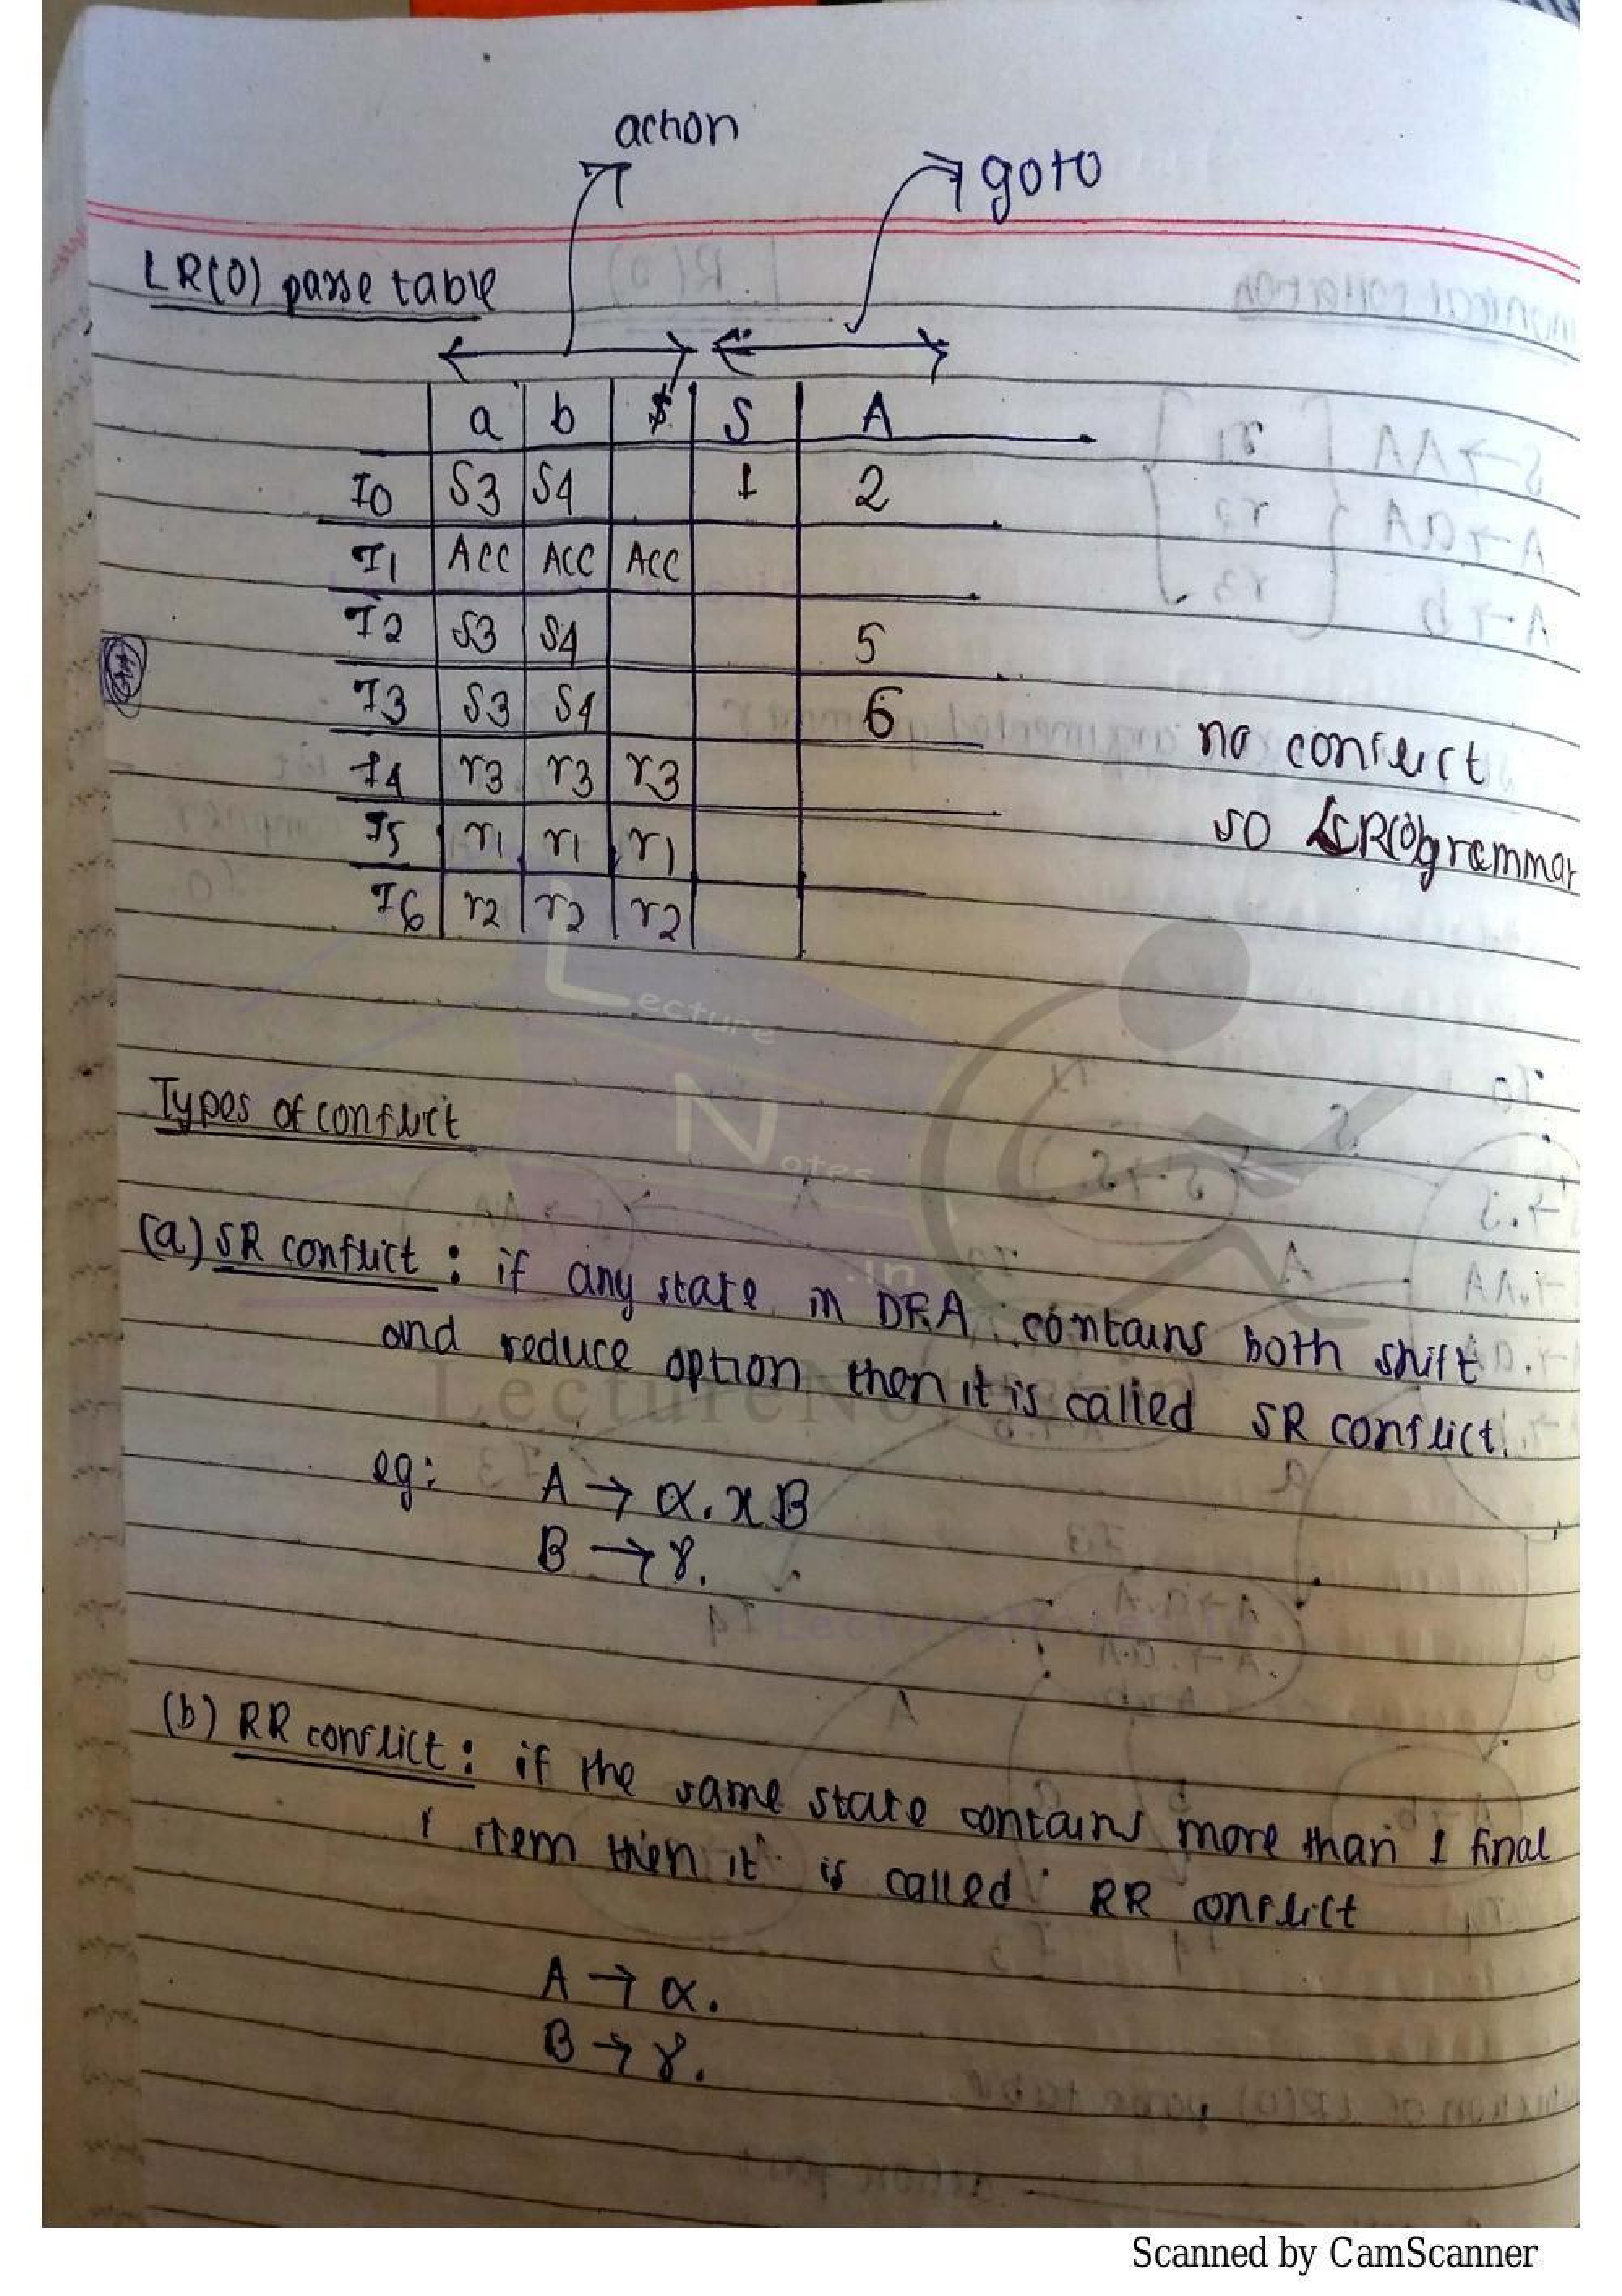 action
goto
LR(0) parse table
a b $ S A
I0 S3 S4 1 2
I1 ACC ACC ACC
I2 S3 S4 5
I3 S3 S4 6
no conflict
I4 r3 r3 r3
so LR(0) grammar
I5 r1 r1 r1
I6 r2 r2 r2
Lecture
Notes
.in
Types of conflict
(a) SR conflict : if any state in DFA contains both shift
and reduce option then it is called SR conflict.
eg: A → α.xB
B → γ.
(b) RR conflict : if the same state contains more than 1 final
item then it is called RR conflict
A → α.
B → γ.
Scanned by CamScanner